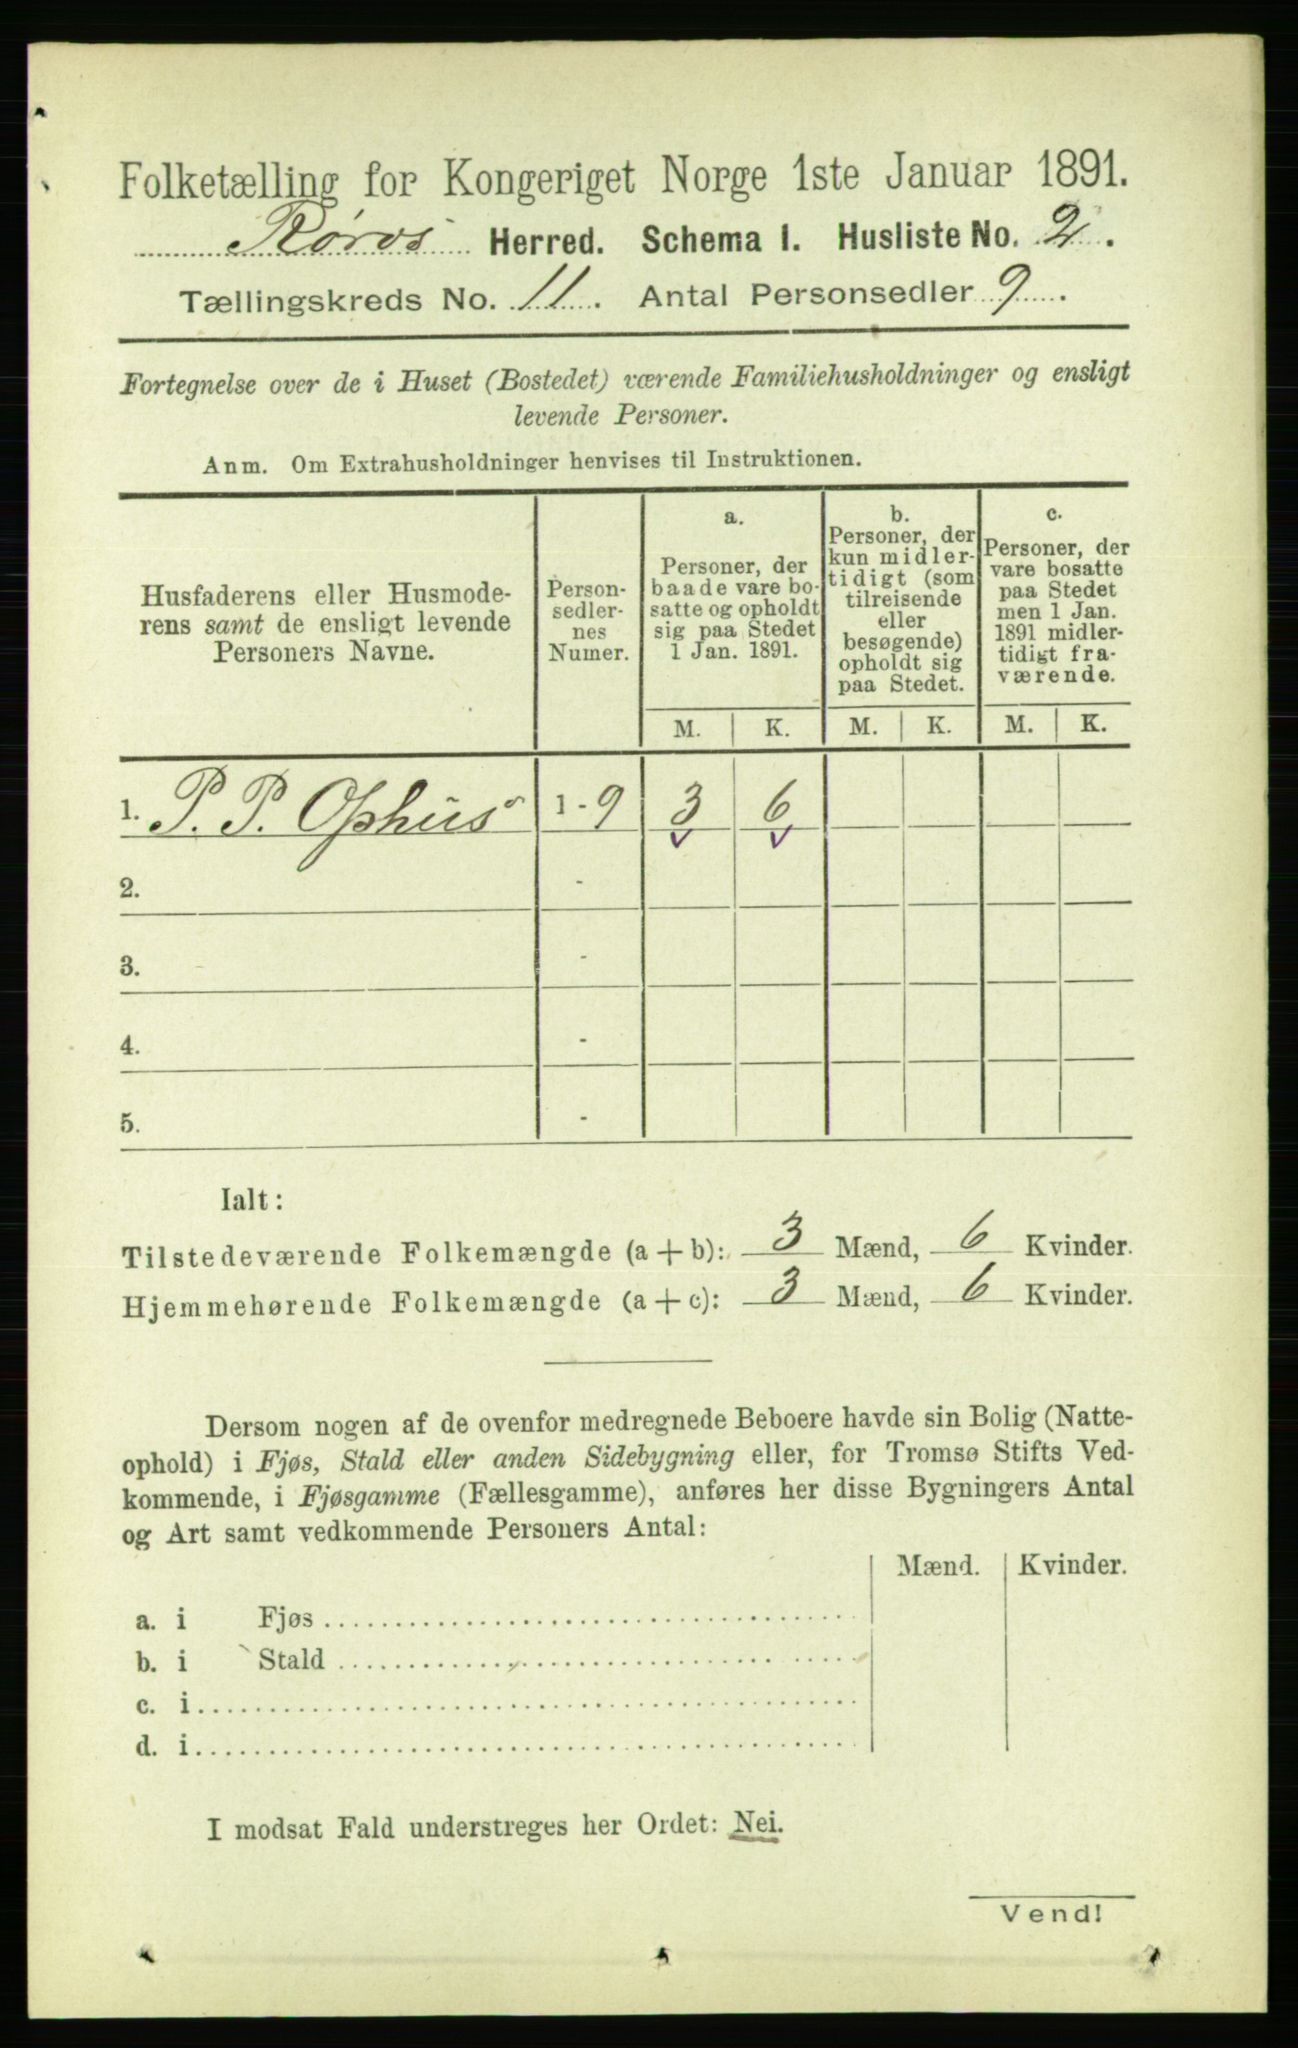 Folketælling for Kongeriget Norge 1ste Januar 1891.
Røros Herred. Schema 1. Husliste No. 2.
Tællingskreds No. 11. Antal Personsedler 9.
Fortegnelse over de i Huset (Bostedet) værende Familiehusholdninger og ensligt
levende Personer.
Anm. Om Extrahusholdninger henvises til Instruktionen.
Husfaderens eller Husmode-
rens samt de ensligt levende
Personers Navne.
Person-
sedler-
nes
Numer.
a.
Personer, der
baade vare bo-
satte og opholdt
sig paa Stedet
1 Jan. 1891.
b.
Personer, der
kun midler-
tidigt (som
tilreisende
eller
besøgende)
opholdt sig
paa Stedet.
c.
Personer, der
vare bosatte
paa Stedet
men 1 Jan.
1891 midler-
tidigt fra-
værende.
M. K. M. K. M. K.
1. P. P. Ophus 1 - 9 3 6
2. -
3. -
4. -
5. -
Ialt:
Tilstedeværende Folkemængde (a + b): 3 Mænd, 6 Kvinder.
Hjemmehørende Folkemængde (a + c): 3 Mænd, 6 Kvinder.
Dersom nogen af de ovenfor medregnede Beboere havde sin Bolig (Natte-
ophold) i Fjøs, Stald eller anden Sidebygning eller, for Tromsø Stifts Ved-
kommende, i Fjøsgamme (Fællesgamme), anføres her disse Bygningers Antal
og Art samt vedkommende Personers Antal:
Mænd. Kvinder.
a. i Fjøs
b. i Stald
c. i
d. i
I modsat Fald understreges her Ordet: Nei.
Vend!